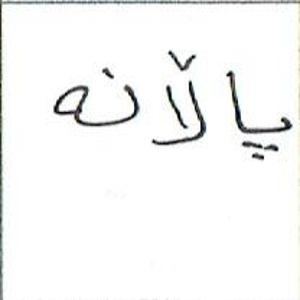 پاڵانە